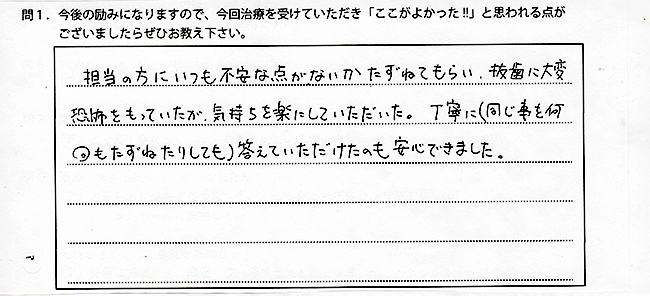 問1. 今後の励みになりますので、今回治療を受けていただき「ここがよかった!!」と思われる点が
ございましたらぜひお教え下さい。
担当の方にいつも不安な点がないかたずねてもらい、抜歯に大変
恐怖をもっていたが、気持ちを楽にしていただいた。丁寧に(同じ事を何
回もたずねたりしても)答えていただけたのも安心できました。